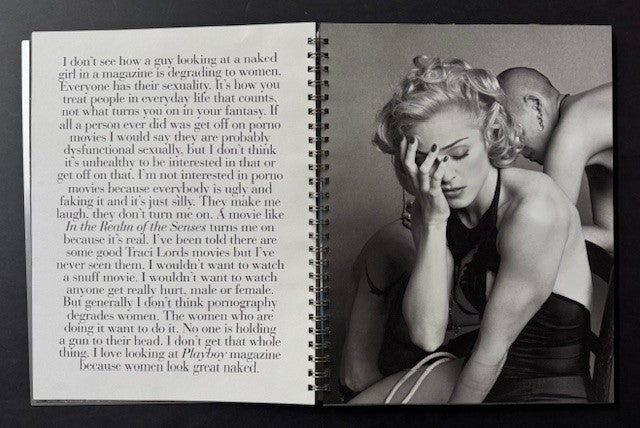 I don't see how a guy looking at a naked
girl in a magazine is degrading to women.
Everyone has their sexuality. It's how you
treat people in everyday life that counts,
not what turns you on in your fantasy. If
all a person ever did was get off on porno
movies I would say they are probably
dysfunctional sexually, but I don't think
it's unhealthy to be interested in that or
get off on that. I'm not interested in porno
movies because everybody is ugly and
faking it and it's just silly. They make me
laugh, they don't turn me on. A movie like
In the Realm of the Senses turns me on
because it's real. I've been told there are
some good Traci Lords movies but I've
never seen them. I wouldn't want to watch
a snuff movie. I wouldn't want to watch
anyone get really hurt, male or female.
But generally I don't think pornography
degrades women. The women who are
doing it want to do it. No one is holding
a gun to their head. I don't get that whole
thing. I love looking at Playboy magazine
because women look great naked.